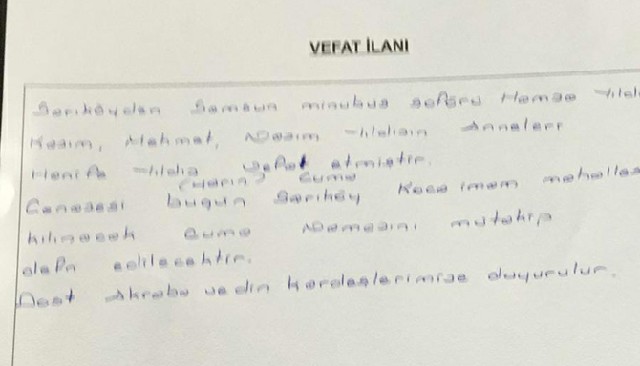 VEFAT İLANI
Sarıköyden Samsun minubus şoförü Hamza
Kazım, Mehmet, Nazım Yıldızın Anneleri
Hanife Yıldız vefat etmiştir.
(Yarın) Cuma
Cenazesi bugün Sarıköy Koca imam mahalles
kılınacak Cuma Namazını mutakip
defn edilecektir.
Dost Akraba ve din kardeşlerimize duyurulur.